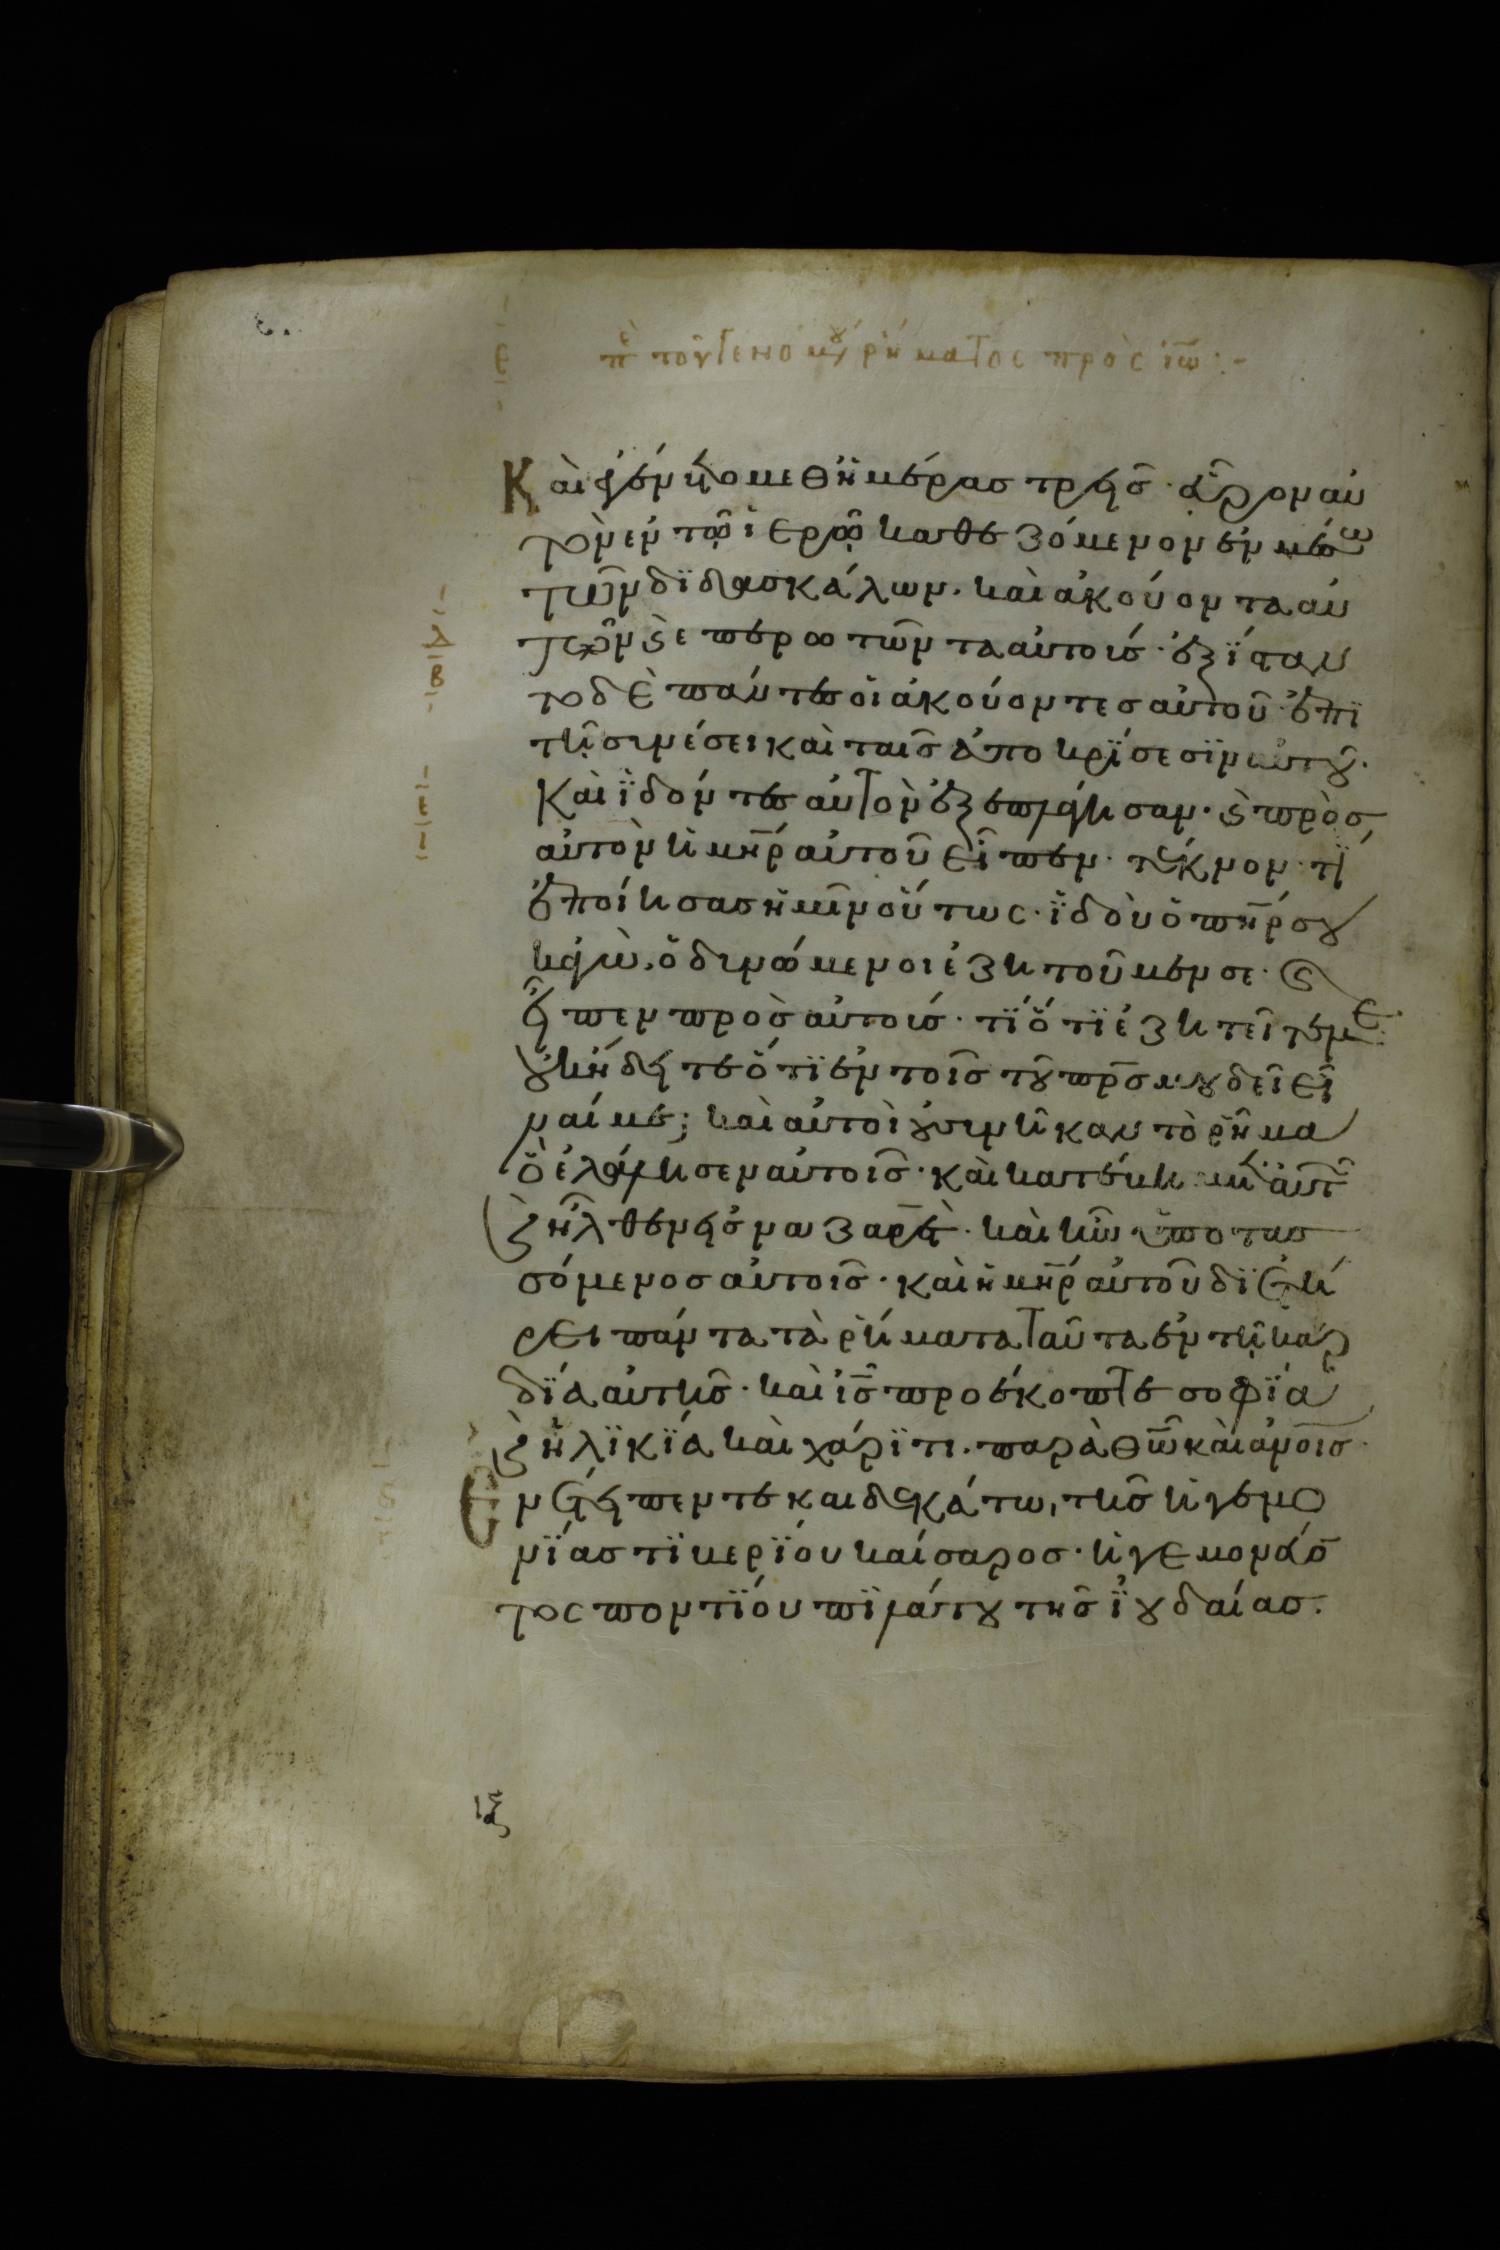 ε
πε του γενομου ρήματος προς ιω :-
Καὶ ἐγένετο μεθ ἡμέρας τρεῖς· εὗρον αὐ
τὸν ἐν τῷ ἱερῷ καθεζόμενον ἐν μέσω
τῶν διδασκάλων· καὶ ἀκούοντα αὐ
τῶν καὶ ἐπερωτῶντα αὐτοίς· ἐξίσταν
το δὲ πάντες οἱ ἀκούοντες αὐτοῦ· ἐπῒ
τῆ συνέσει καὶ ταῖς ἀποκρίσεσϊν αὐτοῦ·
Καὶ ἰδόντες αὐτὸν ἐξεπλάγησαν· καὶ πρὸς
αὐτὸν ἡ μηρ αὐτοῦ εἶπεν· τέκνον· τί
ἐποίησας ἡμῖν οὕτως· ἰδοὺ ὁ πηρ σου
κἀγὼ, ὀδυνώμενοι ἐζητοῦμέν σε· καὶ
εἶπεν πρὸς αὐτοίς· τί ὅτι ἐζητεῖτέ με
οὐκ ἤδειτε ὅτι ἐν τοῖς τοῦ πρς μου δεῖ εἶ
ναί με; καὶ αὐτοὶ οὐ συνῆκαν τὸ ρῆμα
ὃ ἐλάλησεν αὐτοῖς· καὶ κατέβη μετ αὐτ
καὶ ἦλθεν εἰς ναζαρέτ· καὶ ἦν ὑποτασ
σόμενος αὐτοῖς· καὶ ἡ μηρ αὐτοῦ διετή
ρει πάντα τὰ ρήματα ταῦτα ἐν τῆ καρ
δία αὐτῆς· καὶ ις προέκοπτε σοφία
καὶ ἡλικία καὶ χάριτι· παρὰ θω καὶ ἀνοις·
Εν ἔτει πεντεκαιδεκάτω, τῆς ἡγεμο
νίας τιβερίου καίσαρος· ἡγεμονεύον
τος ποντίου πιλάτου τῆς ἰουδαίας.